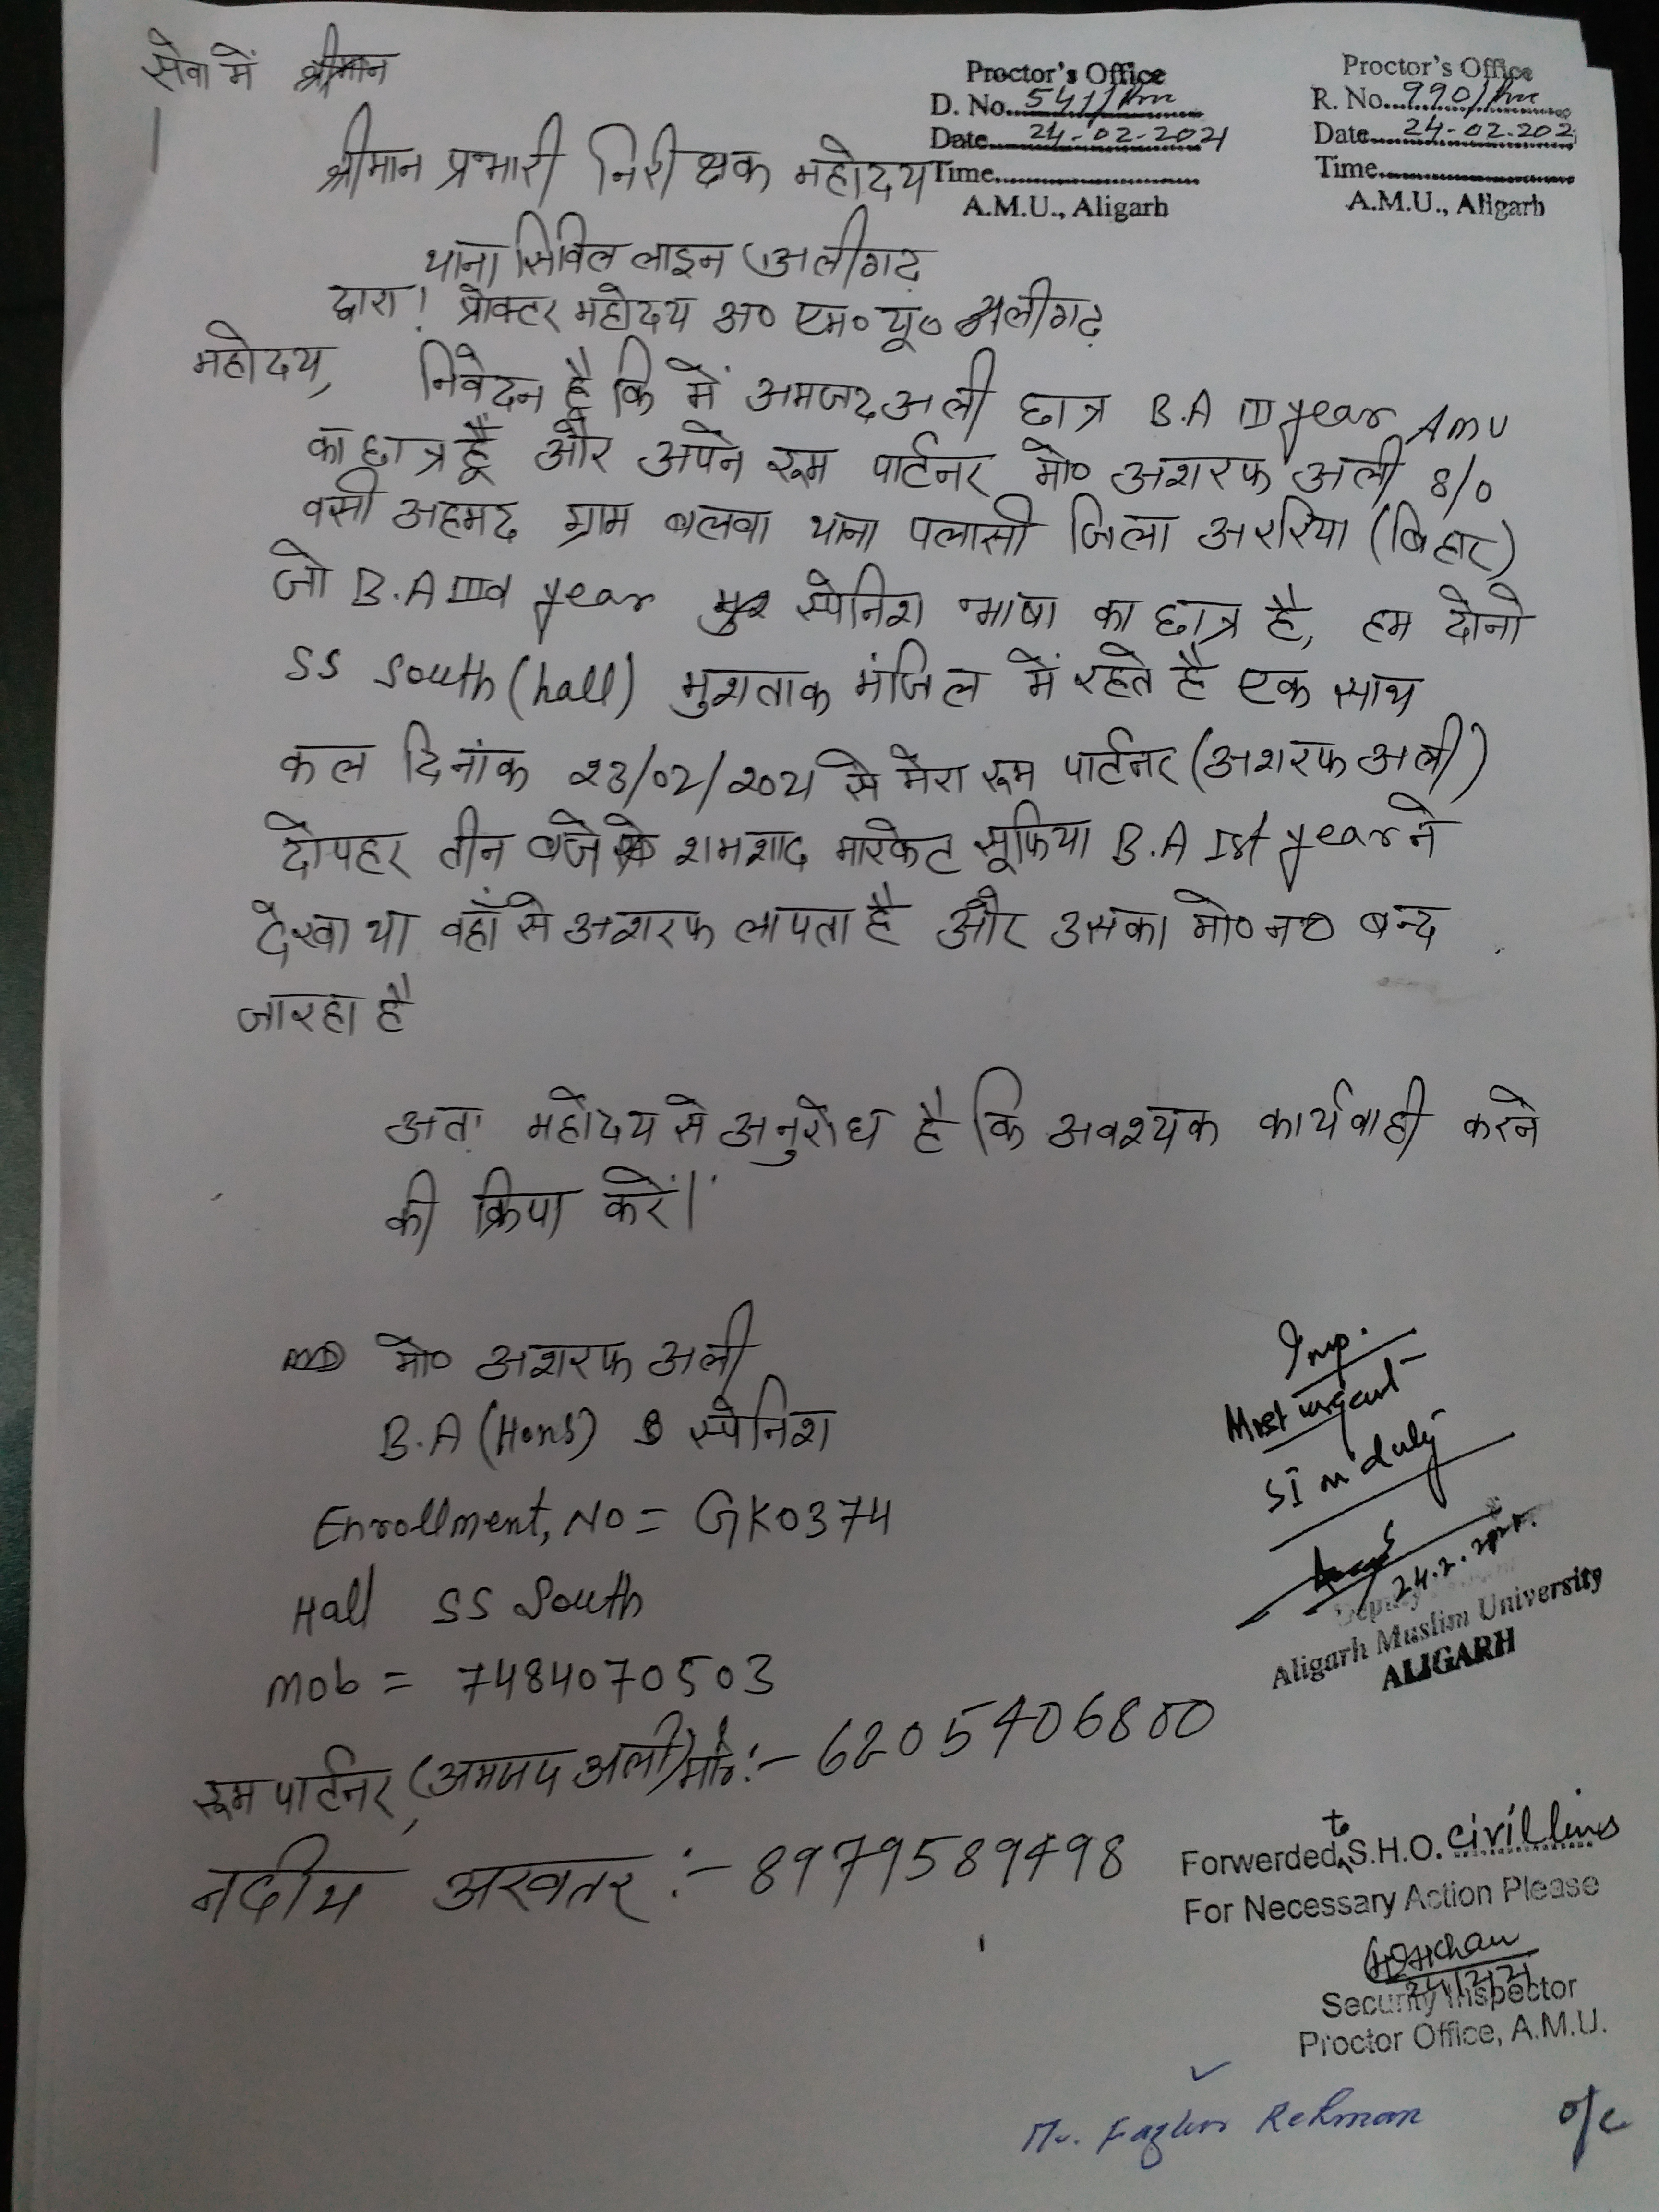 सेवा में श्रीमान
Proctor's Office
D. No. 541/Prn
Date 24-02-2021
Time
A.M.U., Aligarh
Proctor's Office
R. No. 990/Prn
Date 24-02-202
Time
A.M.U., Aligarh
श्रीमान प्रभारी निरीक्षक महोदय
थाना सिविल लाइन अलीगढ़
द्वारा! प्रोक्टर महोदय अ० एम० यू० अलीगढ़
महोदय, निवेदन है कि में अमजद अली छात्र B.A III year AMU
का छात्र हूँ और अपने रूम पार्टनर मो० अशरफ अली S/O
वसी अहमद ग्राम बलवा थाना पलासी जिला अररिया (बिहार)
जो B.A IIIrd year स्पेनिश भाषा का छात्र है, हम दोनो
SS South (hall) मुशताक मंजिल में रहते है एक साथ
कल दिनांक 23/02/2021 से मेरा रूम पार्टनर (अशरफ अली)
दोपहर तीन बजे शमशाद मारकेट सूफिया B.A Ist year ने
देखा था वहाँ से अशरफ लापता है और उसका मो० न० बन्द
जा रहा है
अत: महोदय से अनुरोध है कि अवश्यक कार्यवाही करने
की क्रिपा करें।
मो० अशरफ अली
B.A (Hons) स्पेनिश
Enrollment, No = GK0374
Hall SS South
Mob = 7484070503
रूम पार्टनर, (अमजद अली) मो०:- 6205406800
नदीम अखतर :- 8979589498
Imp.
Most urgent
SI on duty
24.2.2021.
Deputy
Aligarh Muslim University
ALIGARH
Forwerded to S.H.O. civil lines
For Necessary Action Please
Security Inspector
Proctor Office, A.M.U.
Mr. Fazlur Rehman
o/c